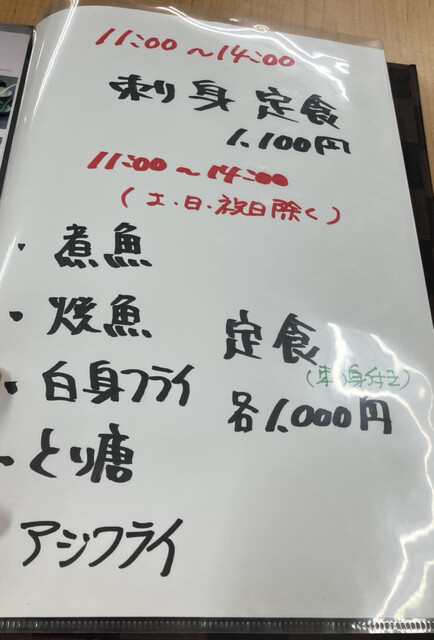 11:00～14:00
刺身定食
1,100円
11:00～14:00
(土・日・祝日除く)
・煮魚
・焼魚
定食
(刺身付き)
・白身フライ
各1,000円
・とり唐
アジフライ